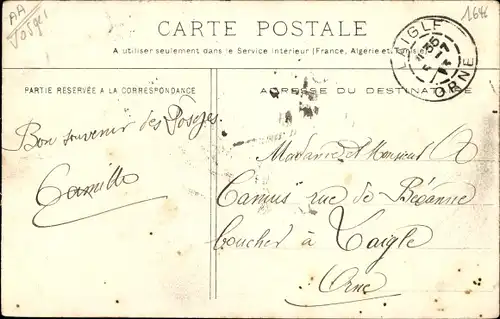 AA
Vosges
1646
CARTE POSTALE
A utiliser seulement dans le Service Intérieur (France, Algérie et Tunisie)
L'AIGLE
ORNE
PARTIE RÉSERVÉE A LA CORRESPONDANCE
ADRESSE DU DESTINATAIRE
Bon souvenir des Vosges.
Camille
Madame et Monsieur A
Camus rue de Béçanne
boucher à Laigle
Orne